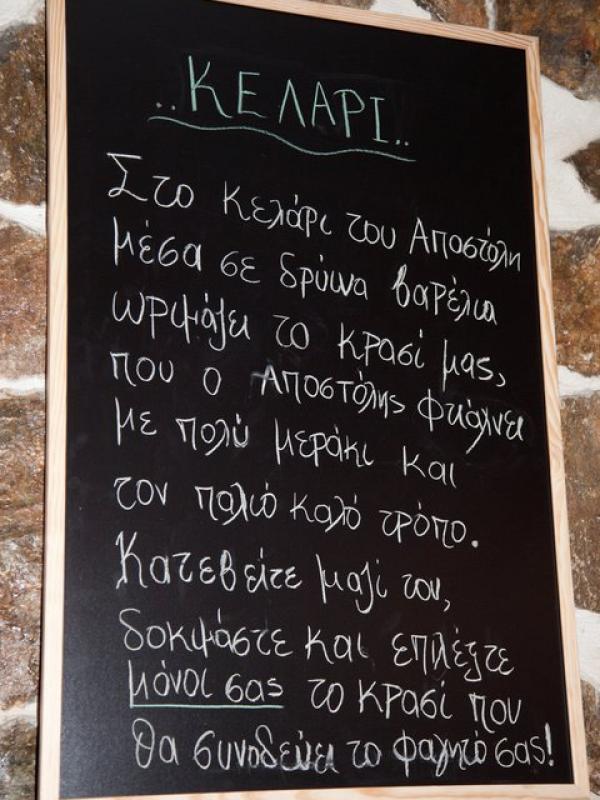 ..ΚΕΛΑΡΙ..
Στο Κελάρι του Αποστόλη
μέσα σε δρύινα βαρέλια
ωριμάζει το κρασί μας,
που ο Αποστόλης φτιάχνει
με πολύ μεράκι και
τον παλιό καλό τρόπο.
Κατεβείτε μαζί του,
δοκιμάστε και επιλέξτε
μόνοι σας το κρασί που
θα συνοδεύει το φαγητό σας!